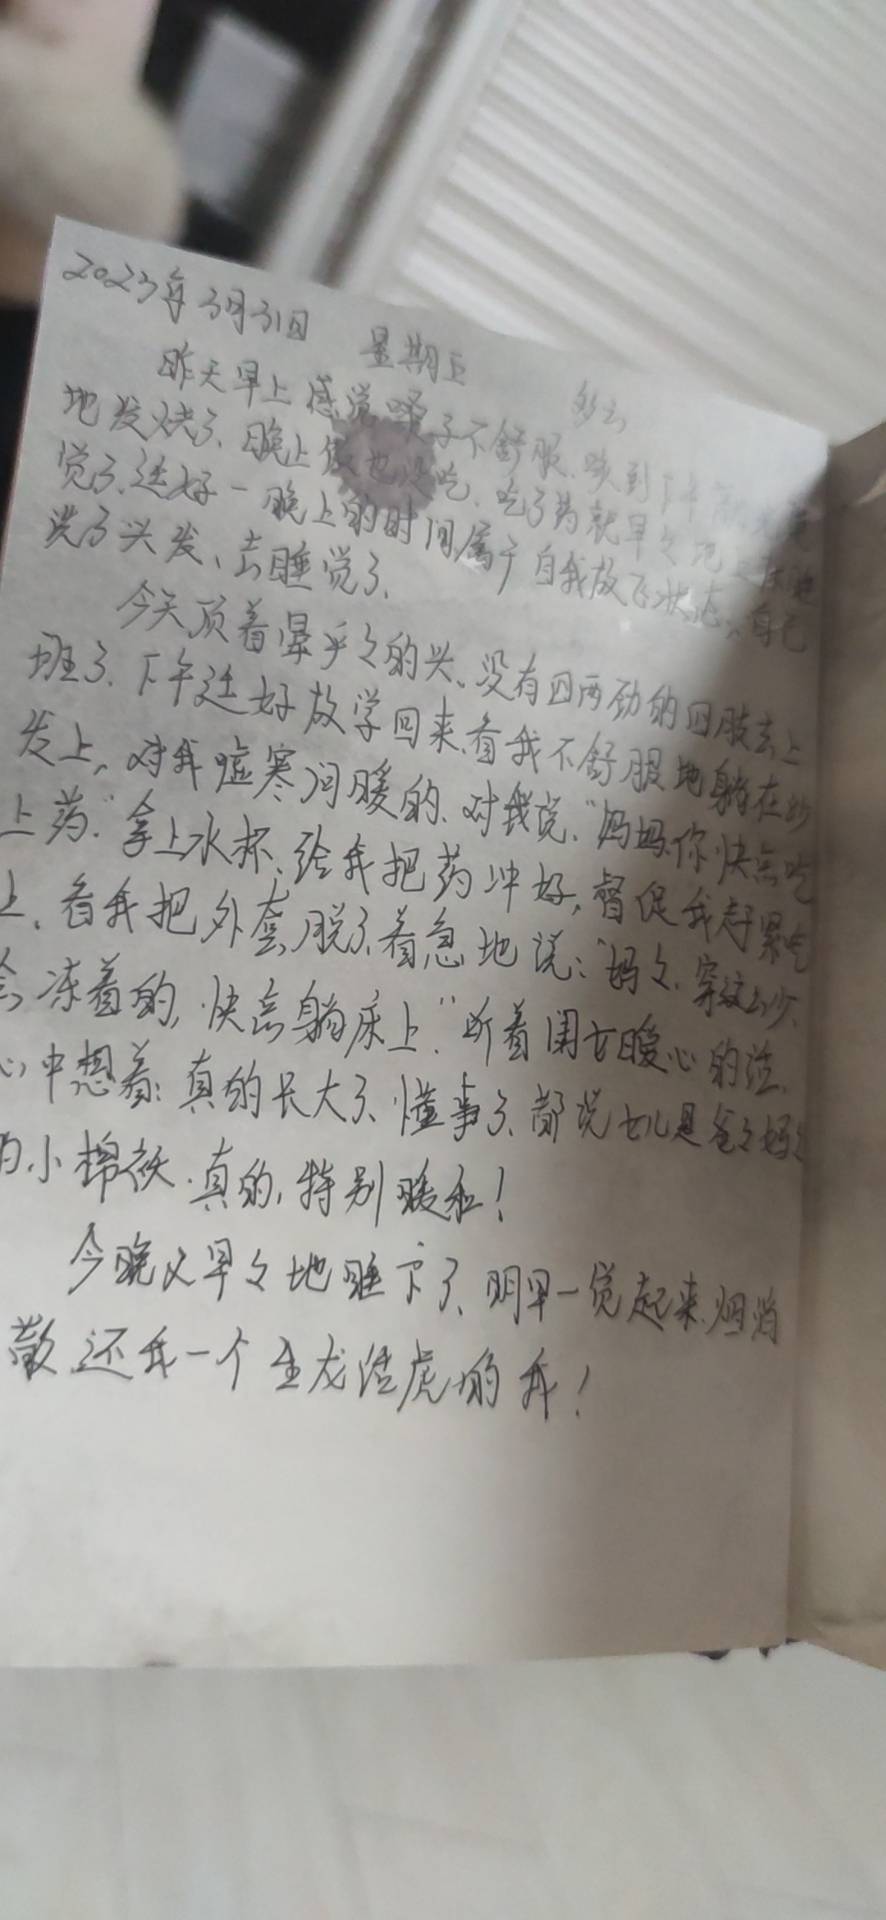 2023年3月31日 星期五 多云
昨天早上感觉嗓子不舒服、咳到下午
地发烧了、晚上饭也没吃、吃了药就早々地
觉了、廷好一晚上的时间属于自我放飞状态、自己
洗了头发、去睡觉了、
今天顶着晕乎々的头、没有四两劲的四肢去上
班了、下午廷好放学回来、看我不舒服地躺在沙
发上、对我嘘寒问暖的、对我说、“妈妈、你快点吃
上药”、拿上水杯、给我把药冲好，督促我赶紧吃
上、看我把外套脱了、着急地说：“妈々、穿这么少、
会冻着的，快点躺床上”听着闺女暖心的话、
心中想着：真的长大了、懂事了、都说女儿是爸々妈々
的小棉袄、真的，特别暖和！
今晚又早々地睡下了、明早一觉起来、烟消
散、还我一个生龙活虎的我！